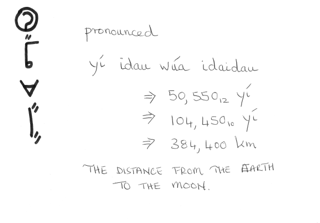 pronounced
yí idau wúa idaidau
⇒ 50,550₁₂ yí
⇒ 104,450₁₀ yí
⇒ 384,400 km
THE DISTANCE FROM THE EARTH
TO THE MOON.